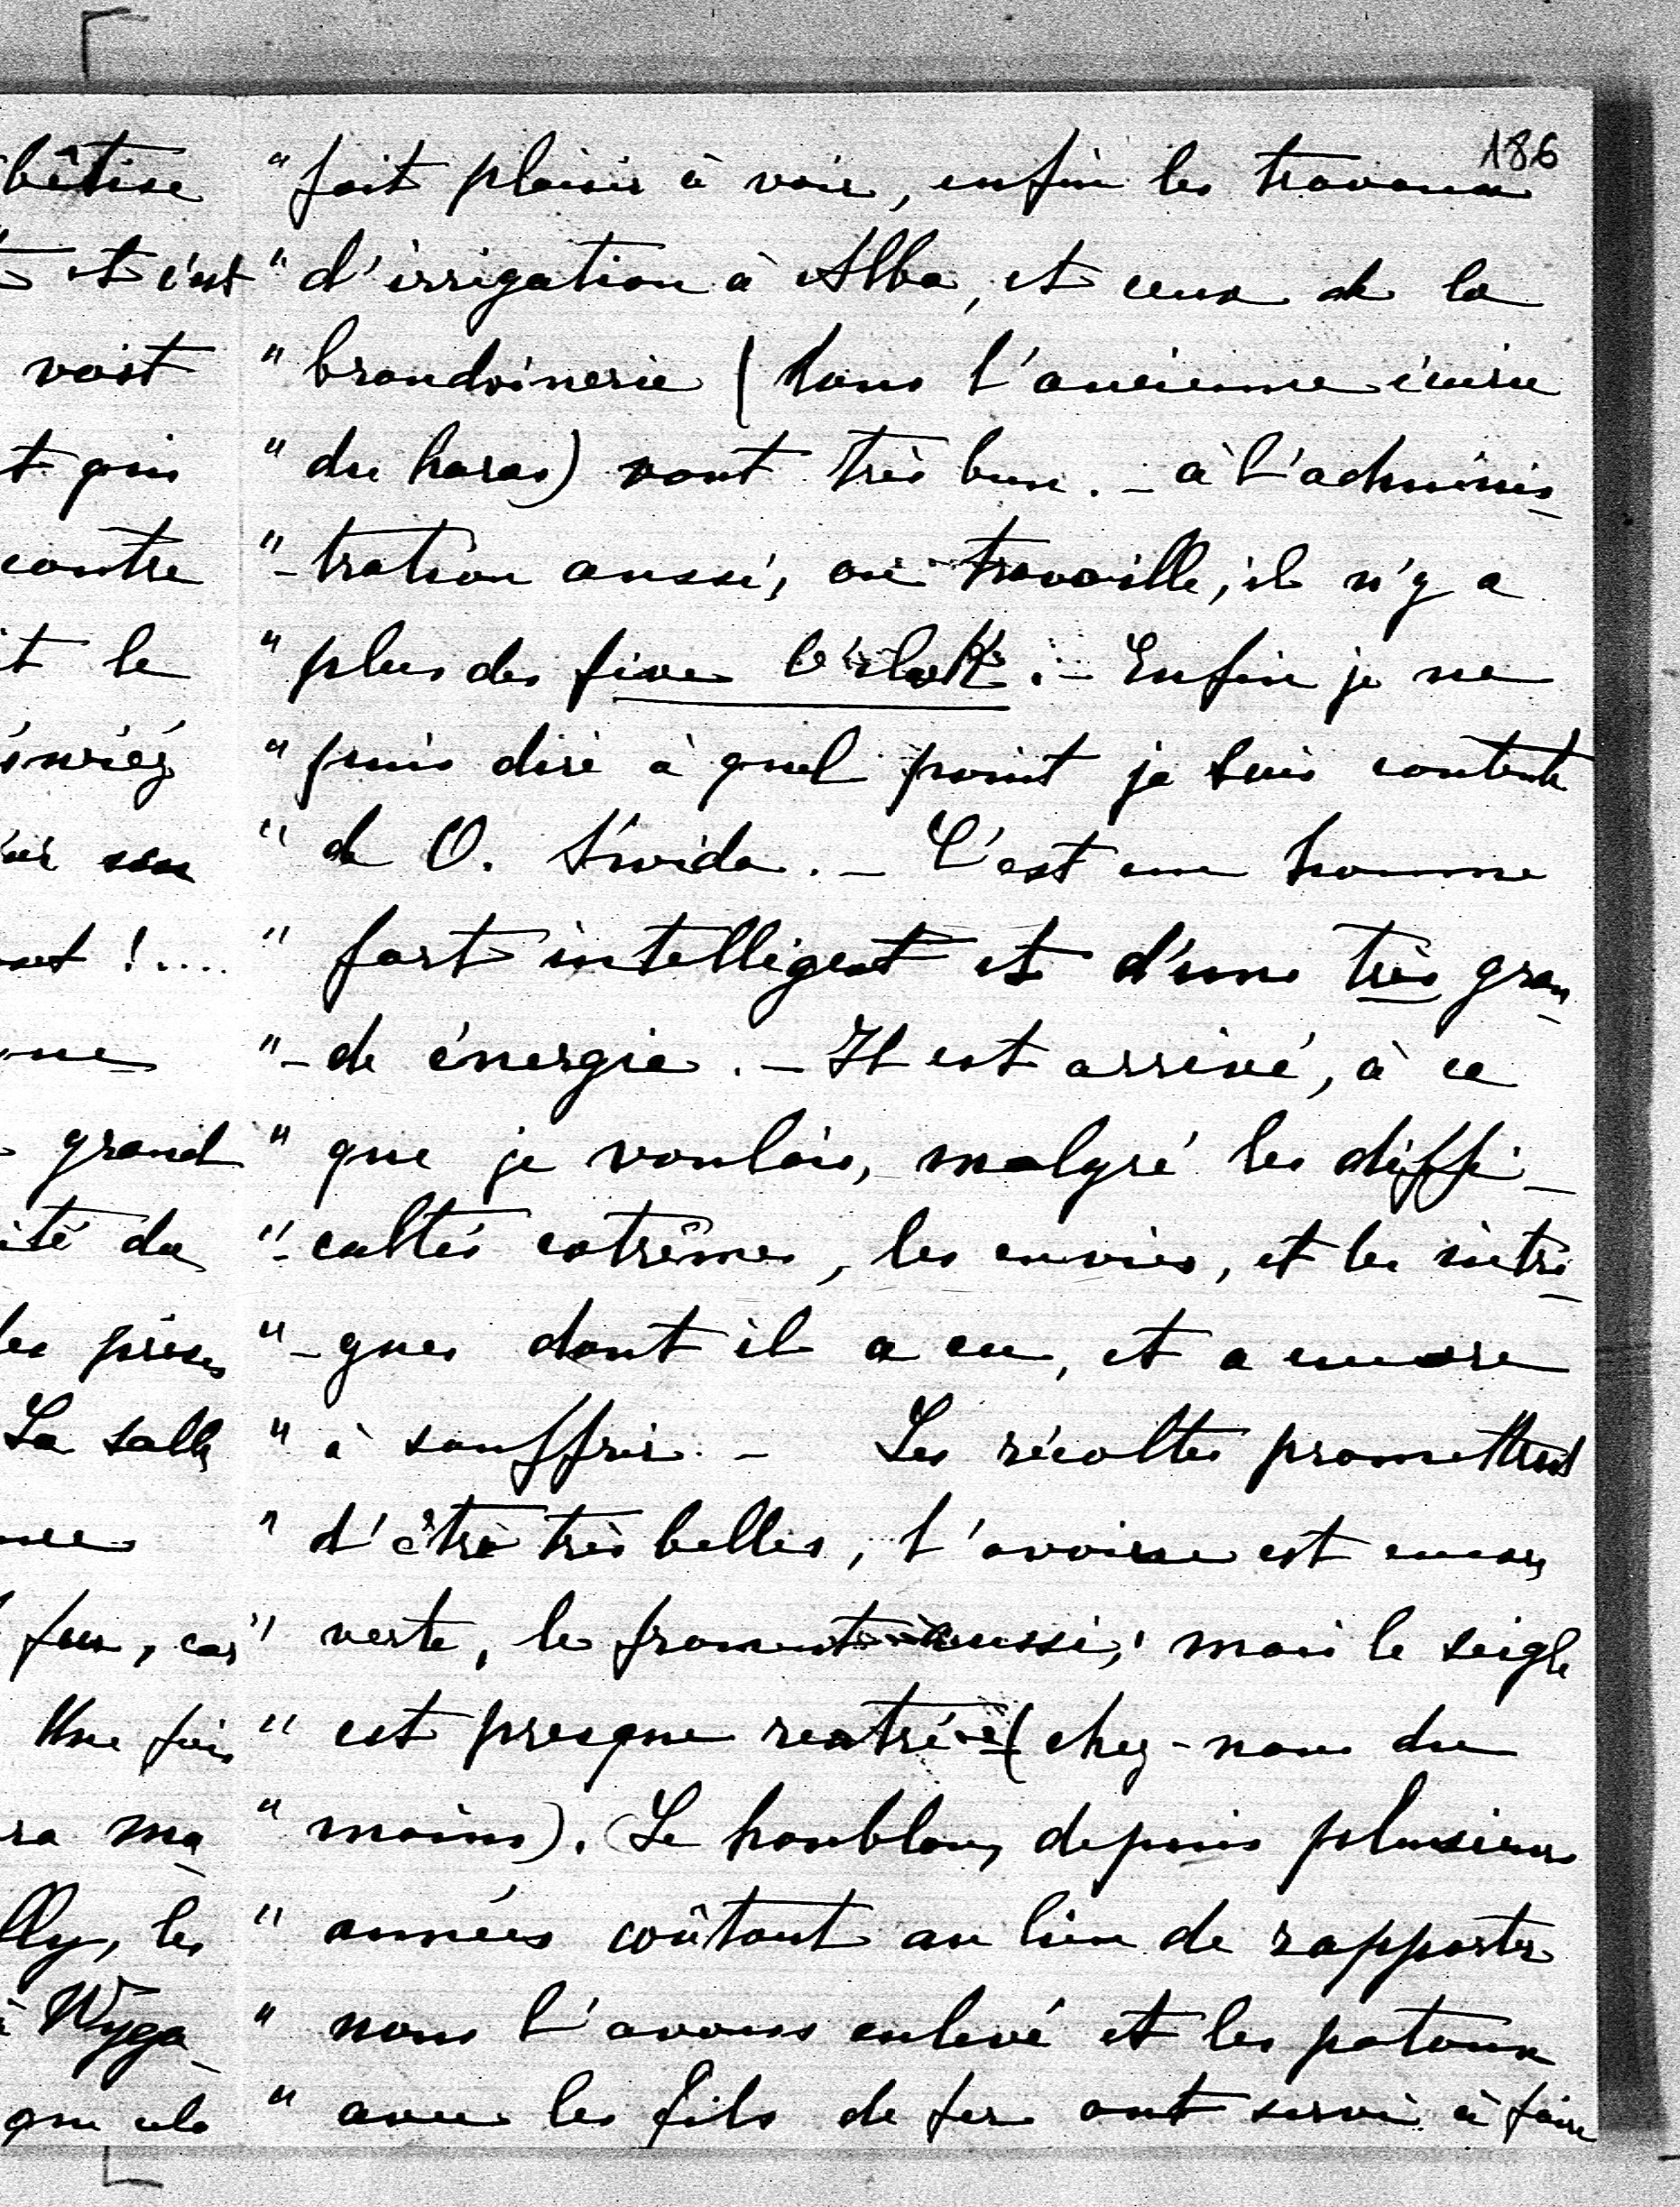 186
" fait plaisir à voir, enfin les travaux
" d'irrigation à Alba, et ceux de la
" brandvinerie (dans l'ancienne écurie
" du haras) vont très bien. - à l'adminis-
" -tration aussi, on travaille, il n'y a
" plus des five o'clok. - Enfin je ne
" puis dire à quel point je suis contente
" de O. Swida. - C'est un homme
" fort intelligent et d'une très gran-
" -de énergie. - Il est arrivé, à ce
" que je voulais, malgré les diffi-
" -cultés extrêmes, les envies, et les intri-
" -gues dont il a eu, et a encore
" à souffrir. - Les récoltes promettent
" d'être très belles, l'avoine est encore
" verte, le froment aussi, mais le seigle
" est presque rentré (chez-nous du
" moins). Le houblon, depuis plusieurs
" années coûtant au lieu de rapporter
" nous l'avons enlevé et les poteaux
" avec les fils de fer ont servi à faire
bêtise
et c'est
voit
contre
le
grand
La salle
feu, car
Une fois
ra ma-
lly, les
à Wyga-
que cela